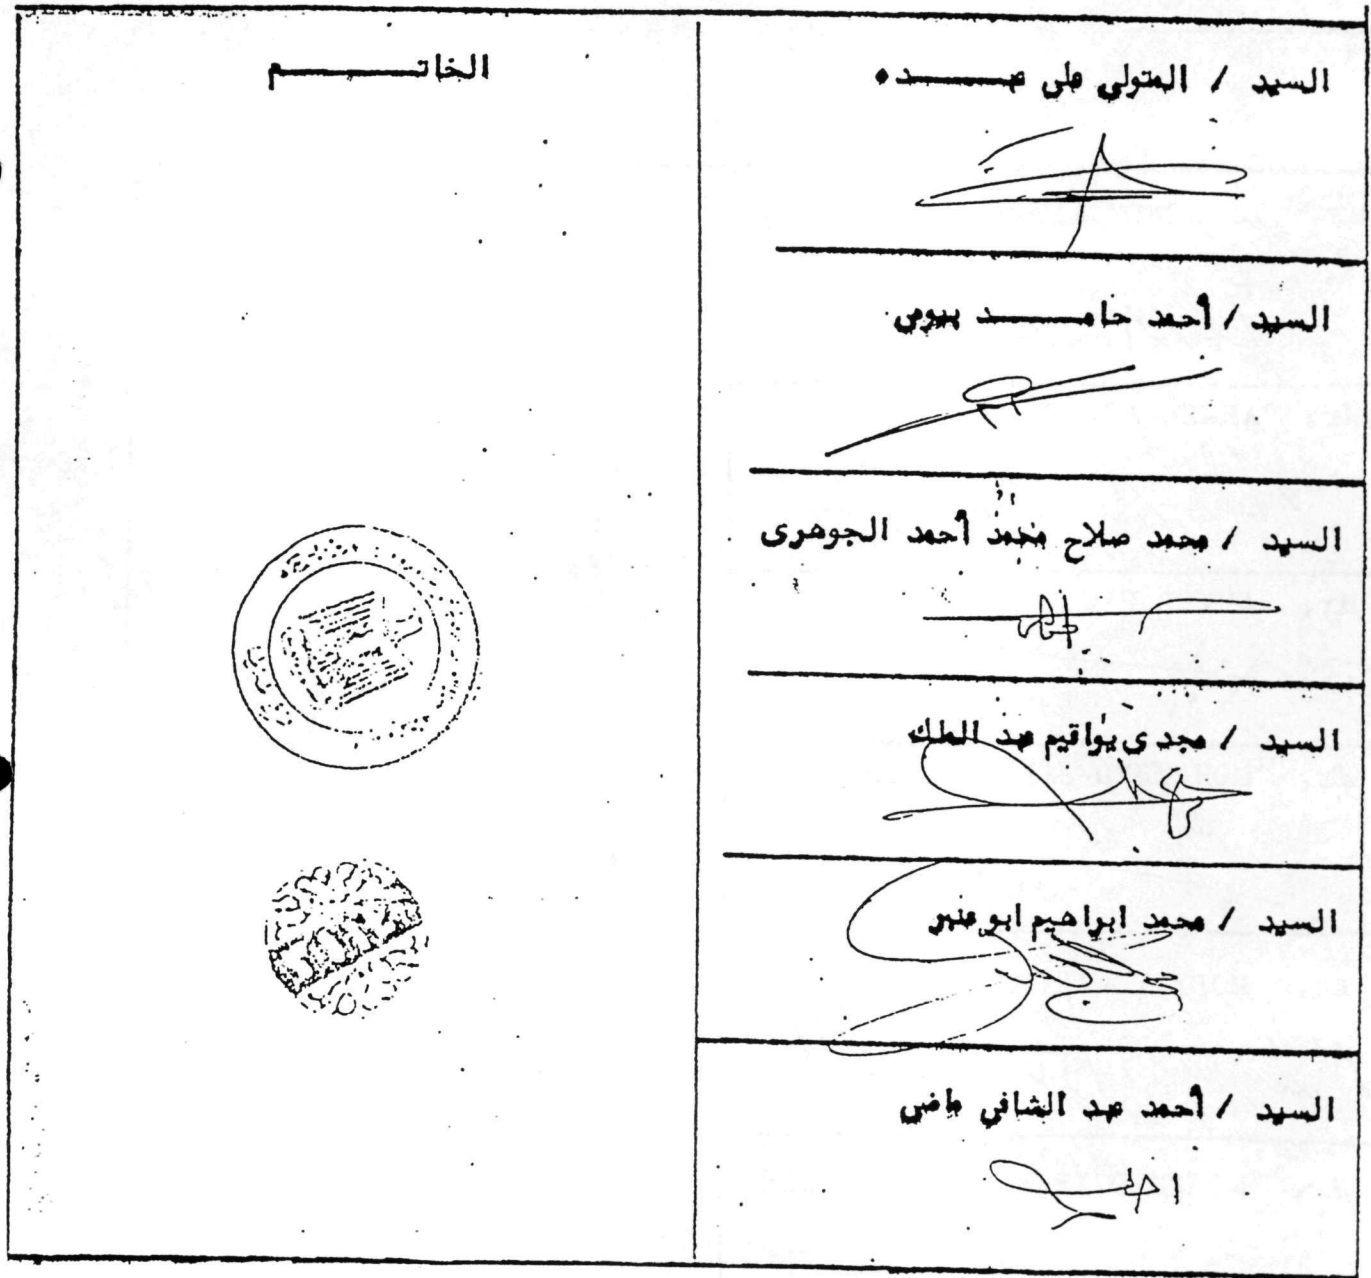 السيد / المتولي على عبده
الخاتم
السيد / أحمد حامد بيومى
السيد / محمد صلاح محمد أحمد الجوهرى
السيد / مجدى يواقيم عبد الملك
السيد / محمد ابراهيم ابو عنبر
السيد / أحمد عبد الشافي ماضى